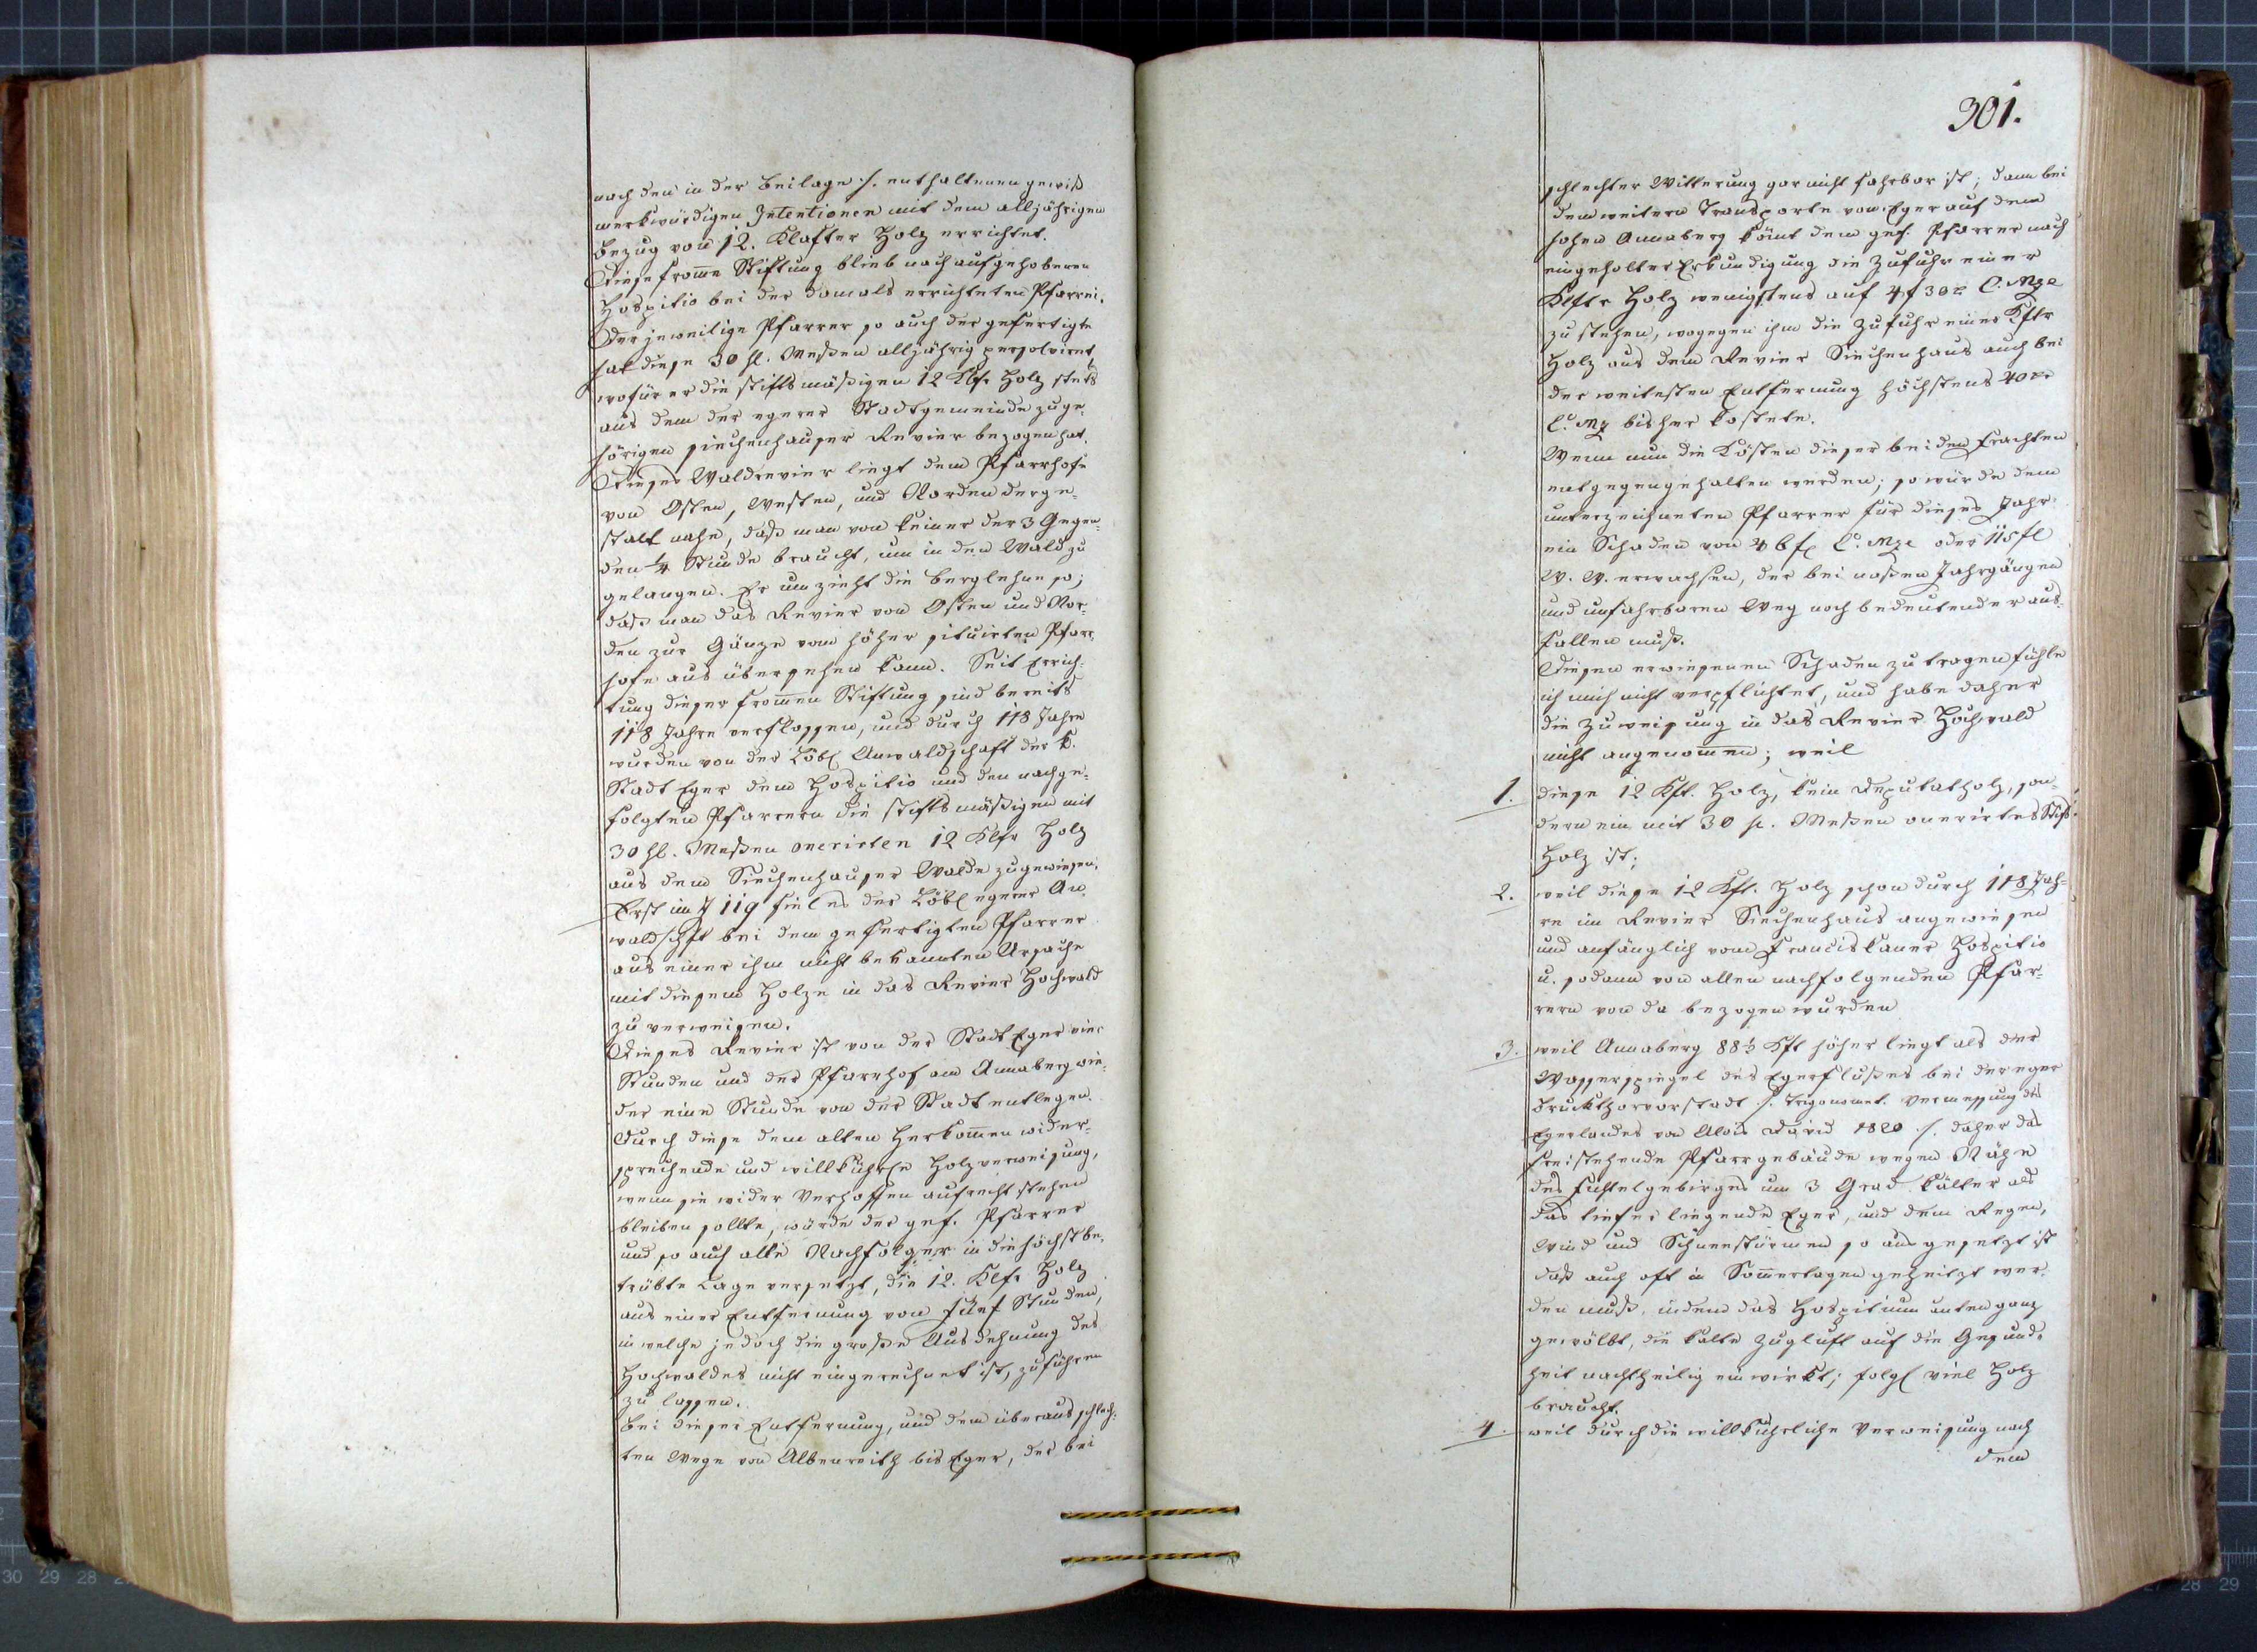 nach den in der Beilage ·/. enthaltenen gewiß
merkwürdigen Intentionen mit dem alljährigen
Bezug von 12. Klafter Holz errichtet.
Diese from̅e Stiftung blieb nach aufgehobenen
Hospitio bei der damals errichteten Pfarrei.
Der jeweilige Pfarrer so auch der gefertigte
hat diese 30 hl. Meßen alljährig persolvirt,
wofür er die stiftsmäßigen 12 Klft Holz stets
aus dem der egerer Stadtgemeinde zuge-
hörigen siechenhauser Revier bezogen hat.
Dieses Waldrevier liegt dem Pfarrhofe
von Osten, Westen, und Norden derge-
stalt nahe, daß man von keiner der 3 Gegen-
den ¼ Stunde braucht, um in den Wald zu
gelangen. Er umzieht die Berglehne so;
daß man das Revier von Osten und Nor-
den zur Gänze vom höher situirten Pfarr-
hofe aus übersehen kann. Seit Errich-
tung dieser from̅en Stiftung sind bereits
118 Jahre verflossen, und durch 118 Jahre
wurden von der Löbl Anwaldschaft der k.
Stadt Eger dem Hospitio und den nachge-
folgten Pfarrern die stiftsmäßigen mit
30 hl. Meßen onerirten 12 Klft Holz
aus dem Siechenhauser Walde zugewiesen,
Erst im J 119 fiel es der Löbl egerer An-
waldschft bei dem gefertigten Pfarrer
aus einer ihm nicht bekannten Ursache
mit diesem Holze in das Revier Hochwald
zu verweisen.
Dieses Revier ist von der Stadt Eger vier
Stunden und der Pfarrhof am Annaberg wie-
der eine Stunde von der Stadt entlegen.
Durch diese dem alten Herkom̅en wider-
sprechende und willkührlche Holzverweisung,
wenn sie wider Verhoffen aufrecht stehen
bleiben sollte, würde der gef. Pfarrer
und so auch alle Nachfolger in die höchst be-
trübte Lage versetzt, die 12. Klft Holz
aus einer Entfernung von fünf Stunden,
in welche jedoch die große Ausdehnung des
Hochwaldes nicht eingerechnet ist, zuführen
zu lassen.
Bei dieser Entfernung, und dem überaus schlech-
ten Wege von Albenreith bis Eger, der bei
301.
schlechter Witterung gar nicht fahrbar ist; dann bei
dem weitern Transporte von Eger auf den
hohen Annaberg köm̅t dem gef. Pfarrer nach
eingeholter Erkundigung die Zufuhr einer
Klftr Holz wenigstens auf 4 f 30 x C. Mze
zu stehen, wogegen ihm die Zufuhr einer Kftr
Holz aus dem Revier Siechenhaus auch bei
der weitesten Entfernung höchstens 40 x
C. Mz bisher kostete.
Wenn nun die Kösten dieser beiden Frachten
entgegengehalten werden; so würde dem
unterzeichneten Pfarrer für dieses Jahr
ein Schaden von 46 f C. Mze oder 115 fl
W. W. erwachsen, der bei naßen Jahrgängen
und unfahrbaren Weg noch bedeutender aus-
fallen muß.
Diesen erwiesenen Schaden zu tragen fühle
ich mich nicht verpflichtet, und habe daher
die Zuweisung in das Revier Hochwald
nicht angenom̅en; weil
1. diese 12 Kft. Holz, kein Deputatholz, son-
dern ein mit 30 h. Meßen onerirtes Stift-
Holz ist;
2. weil diese 12 Kft. Holz schon durch 118 Jah-
re im Revier Siechenhaus angewiesen
und anfänglich vom Franciskaner Hospitio
u. sodann von allen nachfolgenden Pfar-
rern von da bezogen wurden
3. weil Annaberg 88½ Kft höher liegt als der
Wasserspiegel des Egerflußes bei der eger
Bruckthorvorstadt ·/. Trigonomet. Vermessung des
Egerlandes von Alois David 1820 ·/. daher das
freistehende Pfarrgebäude wegen Nähe
des Fichtelgebirges um 3 Grad kälter als
das tiefer liegende Eger, und dem Regen,
Wind und Schneestürmen so aus gesetzt ist
daß auch oft in Som̅ertagen geheitzt wer-
den muß, indem das Hospitium unten ganz
gewölbt, die kalte Zugluft auf die Gesund-
heit nachtheilig einwirkt; folgl viel Holz
braucht.
4. weil durch die willkührliche Verweisung nach
dem